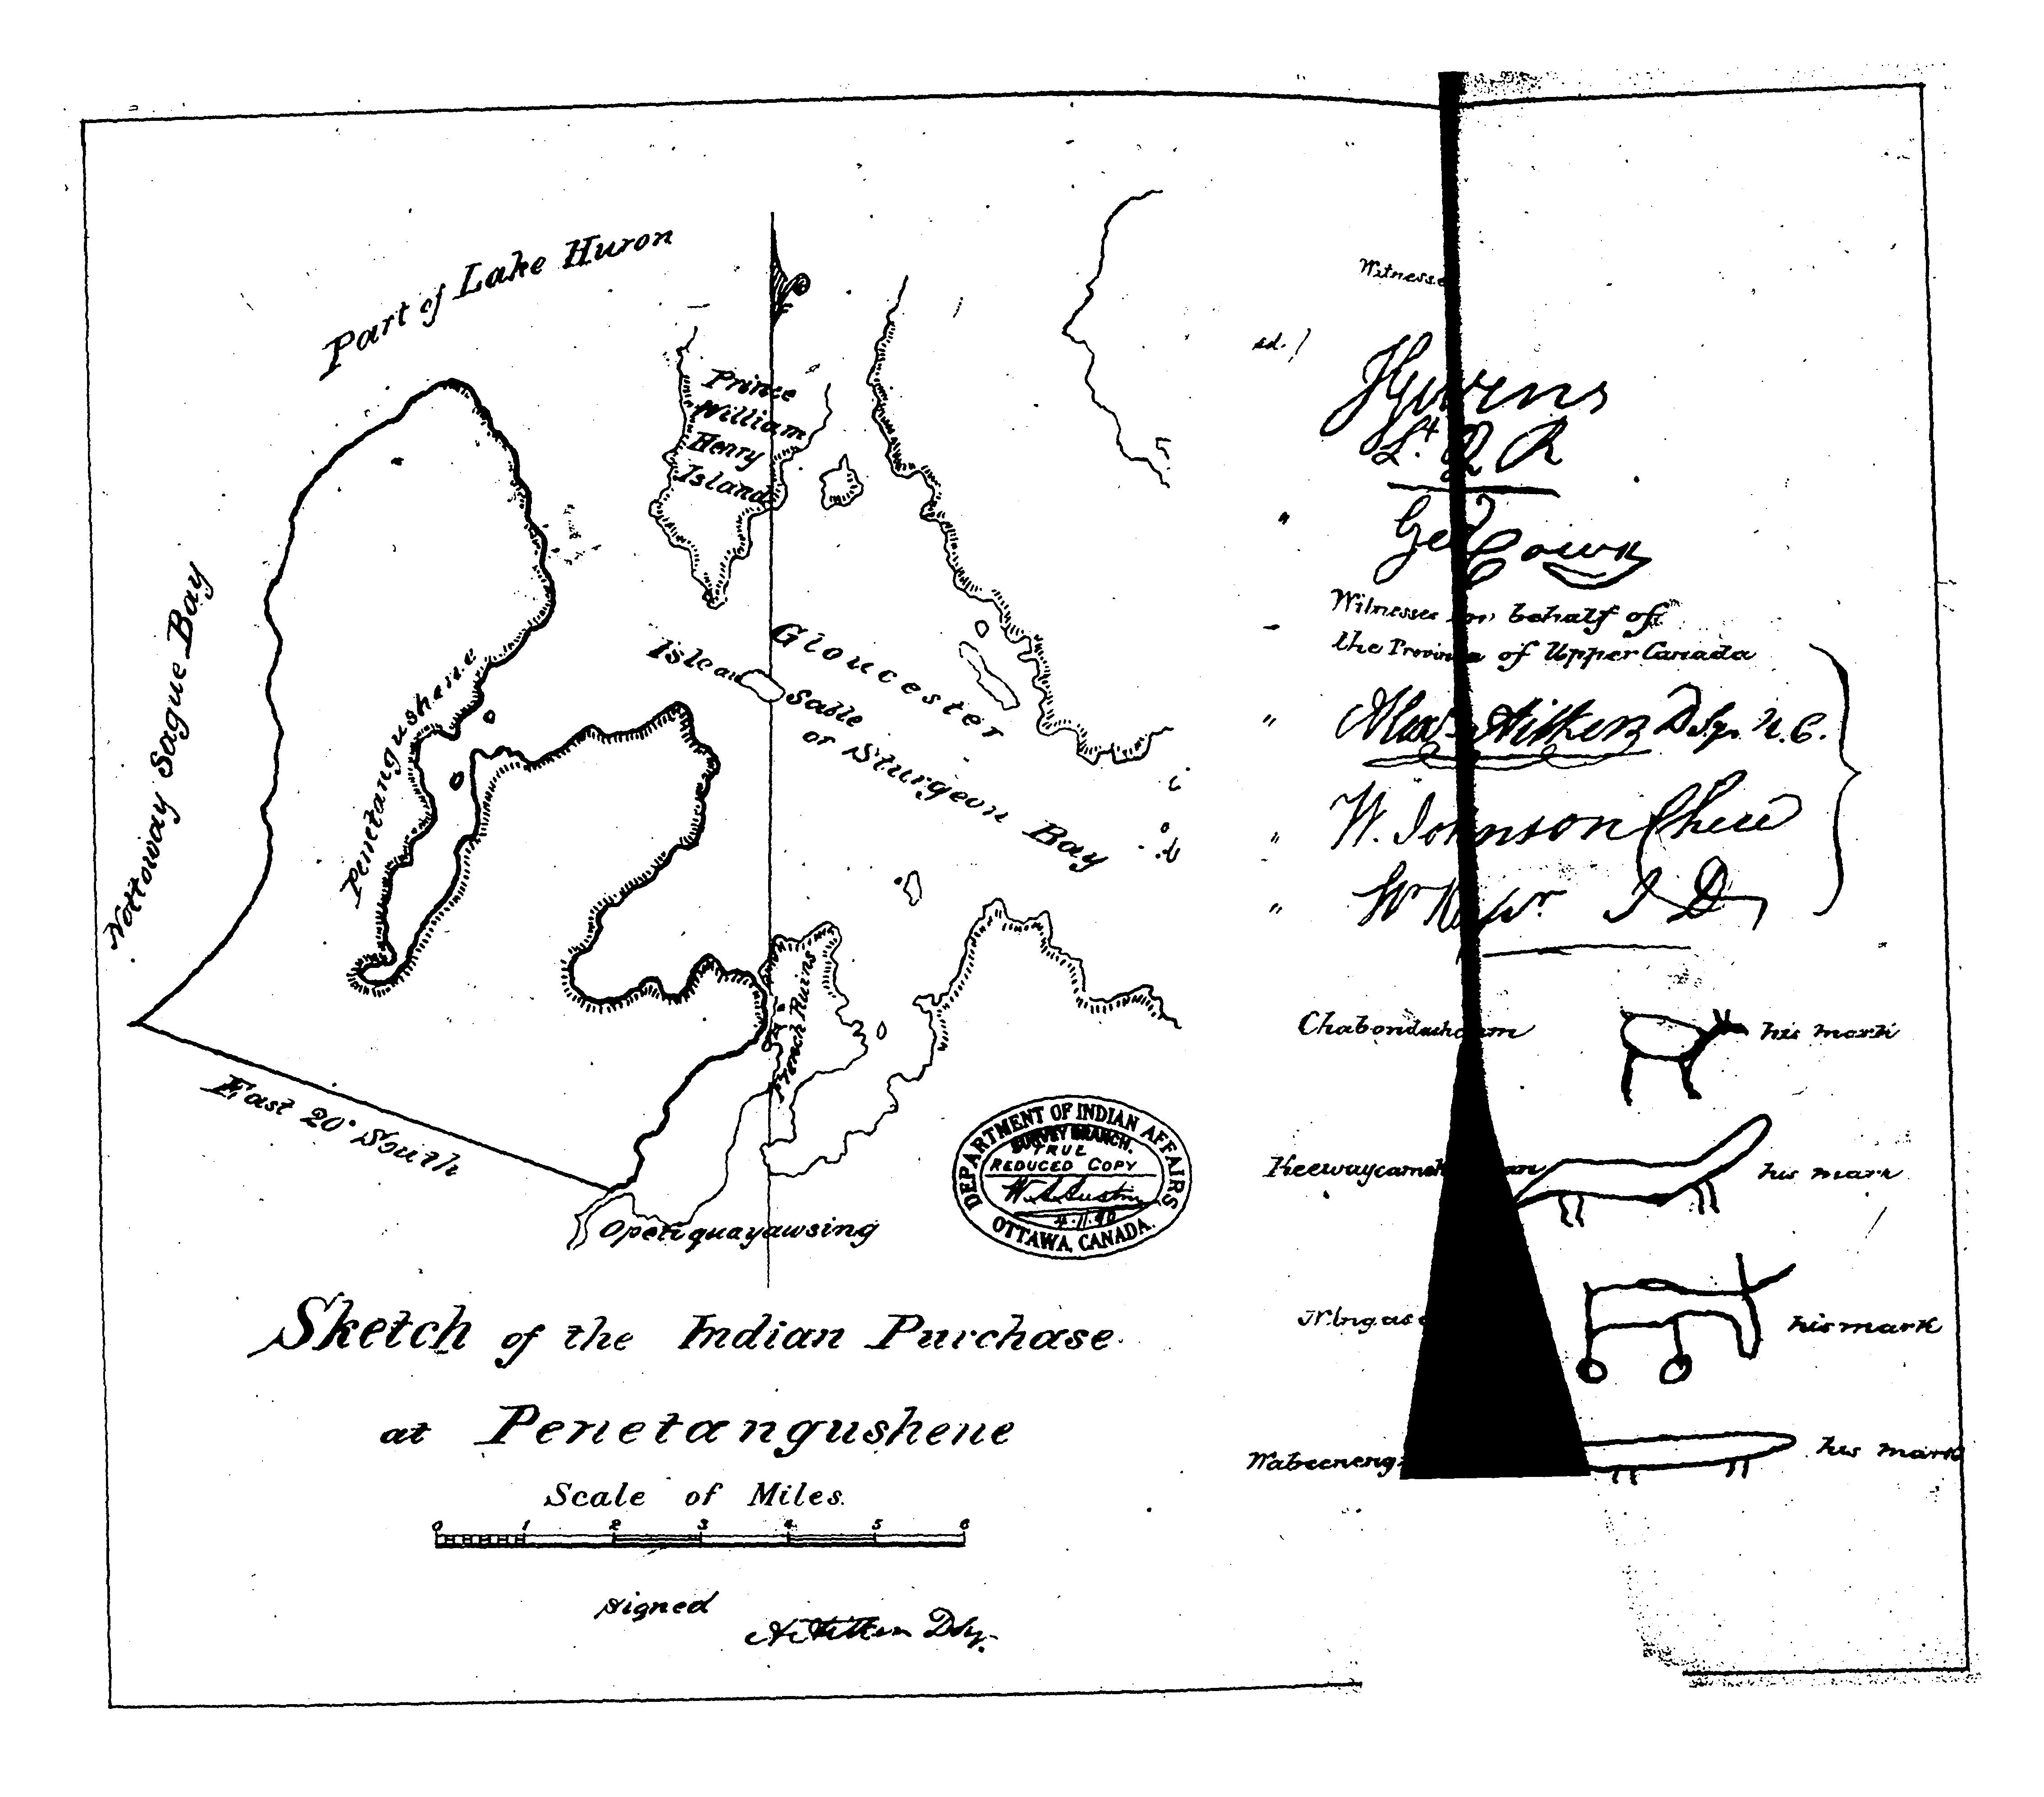 Part of Lake Huron
Nottoway Sague Bay
Penetangushene
Prince
William
Henry
Island
Gloucester
Isle au
Sable
or Sturgeon Bay
French Ruins
East 20° South
Opetiquayawsing
DEPARTMENT OF INDIAN AFFAIRS
SURVEY BRANCH.
TRUE
REDUCED COPY
4.11.90
OTTAWA, CANADA.
Sketch of the Indian Purchase
at Penetangushene
Scale of Miles.
0 1 2 3 4 5 6
signed
A Aitken Dsy.
Witnesse
sd.)
J Givens
Lt. Q R
Geo Cown
Witnesses on behalf of
the Province of Upper Canada
" Alexr Aitken D Sy. U.C.
" W. Johnson Chew
" I D
Chabondasheam his mark
Keewaycamek his mark
his mark
Wabeeneng his mark